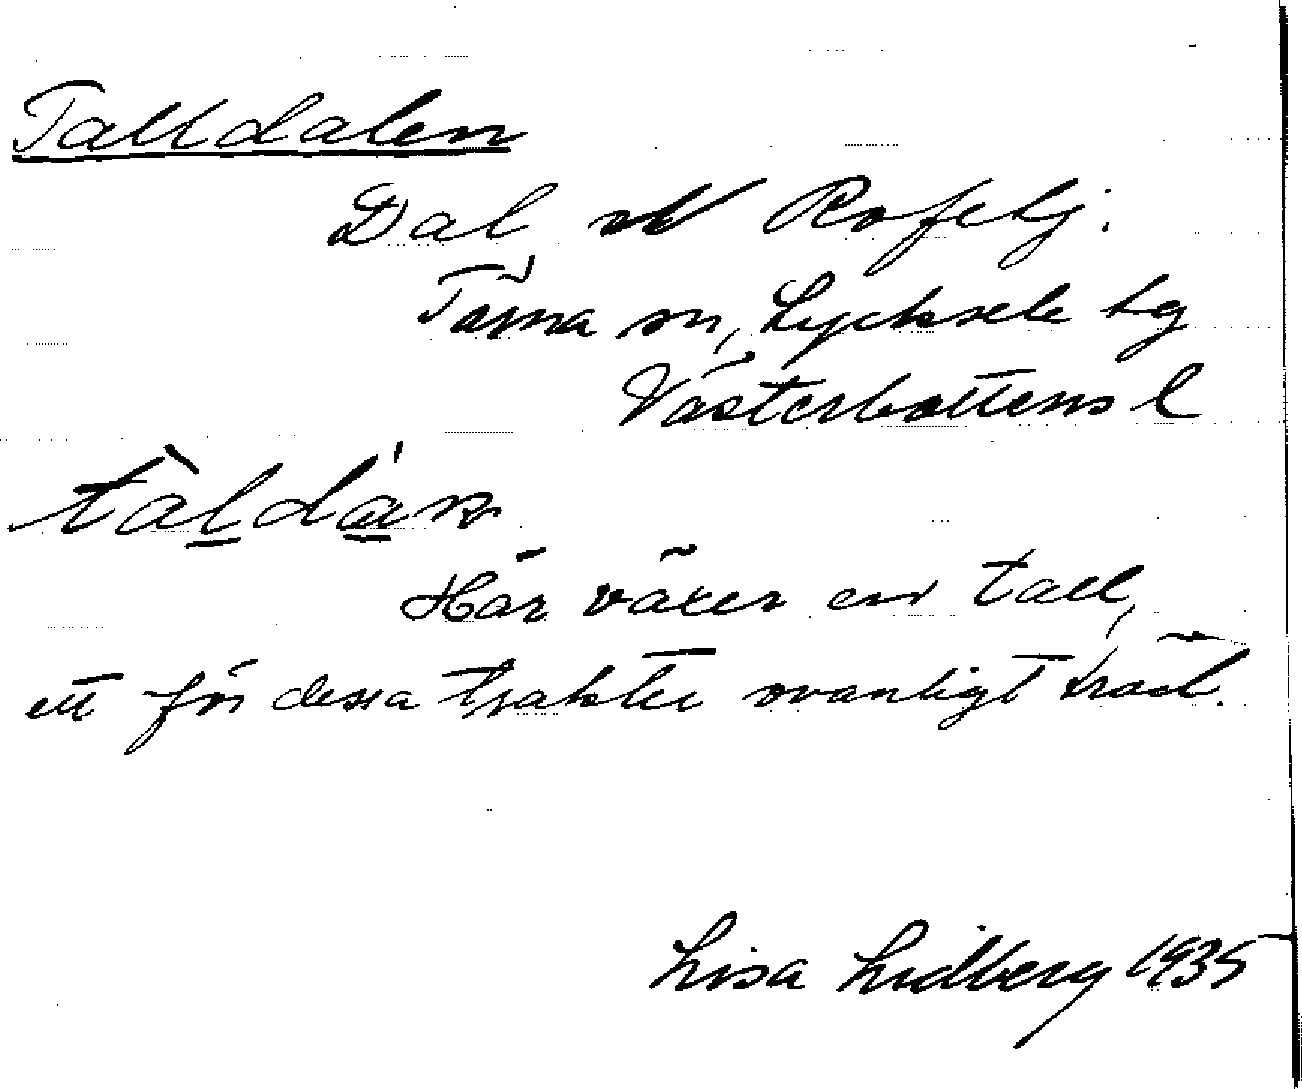 Talldalen
Dal Rofelj.
Tärna sn, Lycksele lg
Västerbottens l
tàldán
Här växer en tall,
ett för dessa trakter ovanligt träd.
Lisa Lidberg 1935